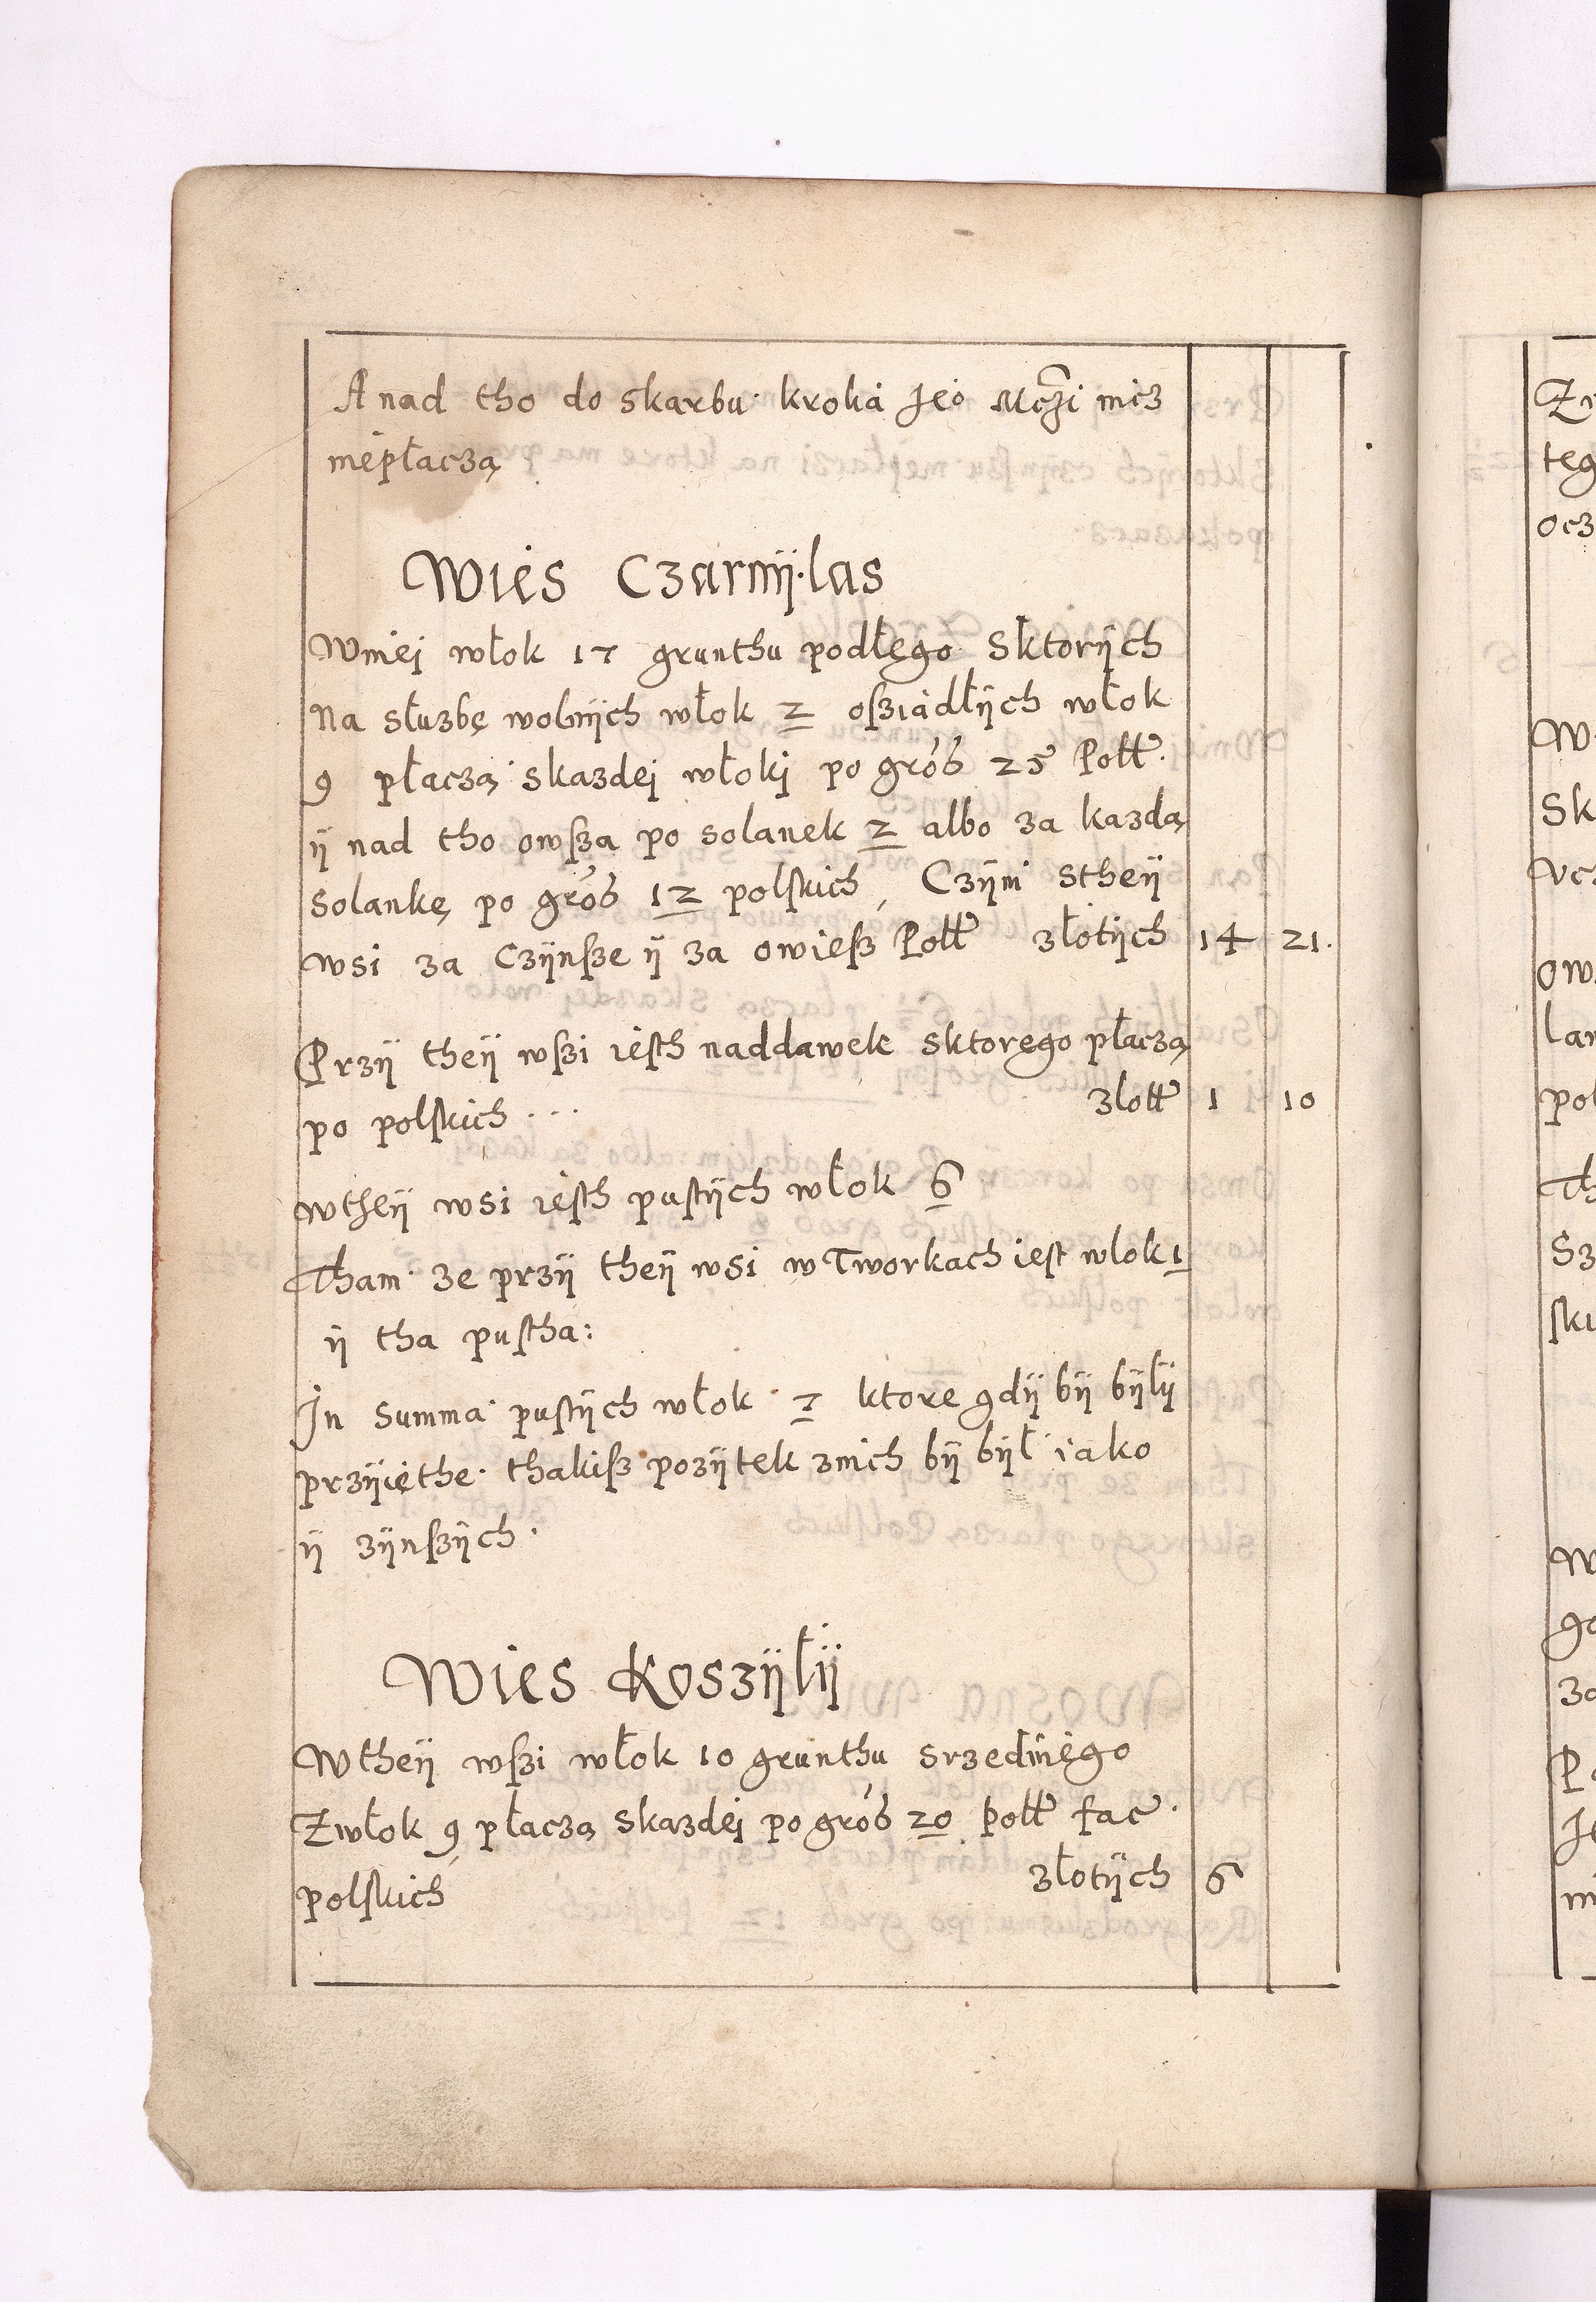 A nad tho do skarbu krola Jeo Mczi nicz
niepłaczą
Wies Czarnÿ las
Wniej włok 17 grunthu podłego Sktorÿch
Na słuzbę wolnÿch włok 2 oſziadłÿch włok
9 płaczą skazdej włokj po gros 25 Poll
ÿ nad tho owſza po solanek 2 albo za kazdą
solankę po gros 12 polſkich, Czÿni Stheÿ
wsi za Czÿnſze ÿ za owieſz Poll złotÿch 14 21.
Przÿ theÿ wſzi ieſth naddawek sktorego płaczą
po polſkich . . . zlott 1 10
wtheÿ wsi ieſth puſtÿch włok 6
Tham ze przÿ theÿ wsi w Tworkach ieſt wlok 1
ÿ tha puſtha:
In Summa puſtÿch włok 7 ktore gdÿ bÿ bÿłÿ
przÿięthe thakiſz pozÿtek znich bÿ bÿł iako
ÿ zÿnſzÿch.
Wies Koszÿłÿ
Wtheÿ wſzi włok 10 grunthu srzedniego
Zwłok 9 płaczą skazdej po gros 20 poll fac
polſkich złotÿch 6
Z
teg
ocz
W
Sk
vcz
ow
lan
pol
Th
Sz
ſki
W
go
za
P
Je